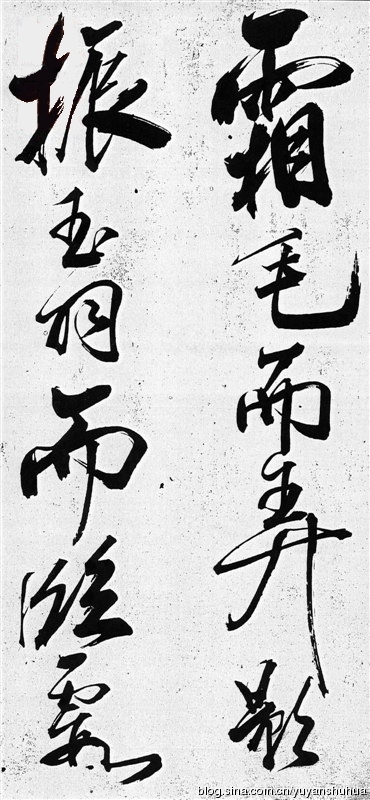 霜毛而弄影
振玉羽而臨霞
blog.sina.com.cn/yuyanshuhua